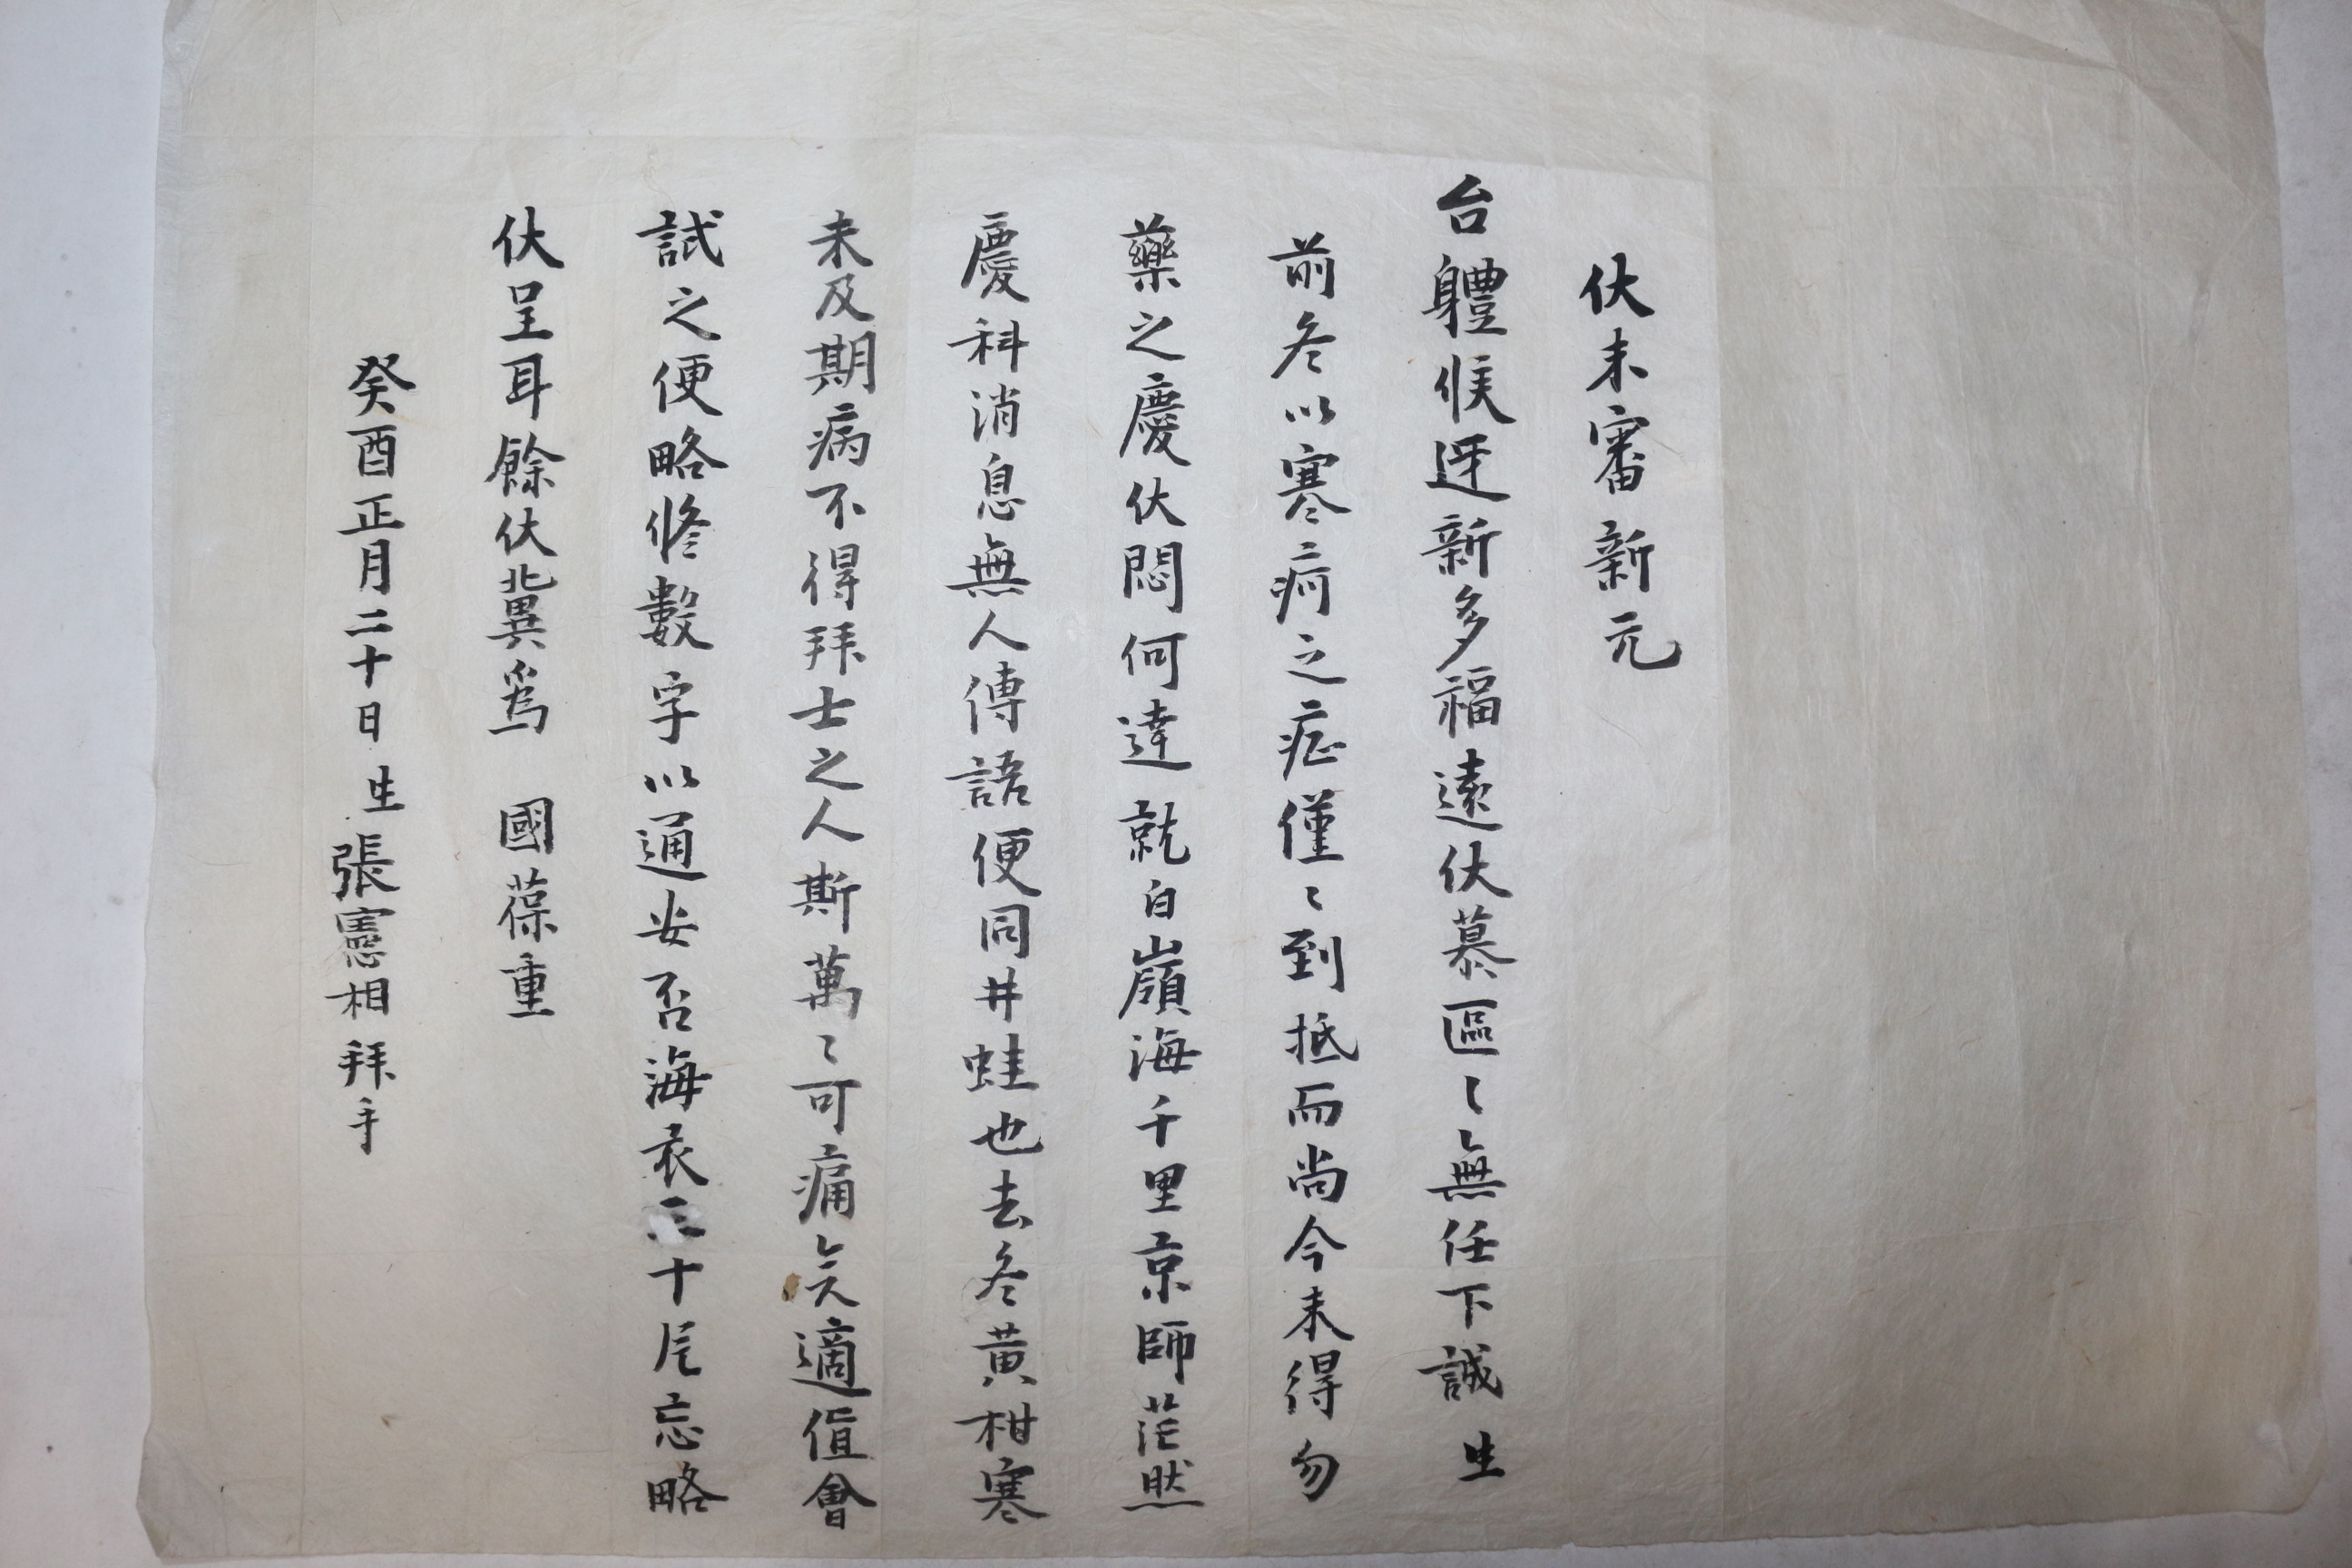 伏未審新元
台軆候迓新多福遠伏慕區〻無任下誠生
前冬以寒疴之症僅〻到抵而尚今未得勿
藥之慶伏悶何達就白嶺海千里京師茫然
慶科消息無人傳語便同井蛙也去冬黄柑寒
未及期病不得拜士之人斯萬〻可痛矣適値會
試之便略修數字以通安否海衣三十尺忘略
伏呈耳餘伏冀爲 國葆重
癸酉正月二十日 生張憲相拜手